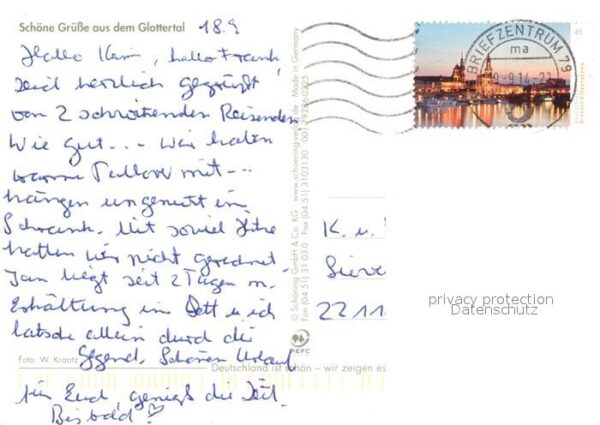 Schöne Grüße aus dem Glottertal
18.9
Hallo Kari, hallo Frank,
seid herzlich gegrüßt
von 2 schwitzenden Reisenden
Wie gut... Wir haben
warme Pullover mit...
hängen ungenutzt im
Schrank. Mit soviel Hitze
hatten wir nicht gerechnet.
Jan liegt seit 2 Tagen m.
Erkältung im Bett u. ich
latsche allein durch die
Gegend. Schönen Urlaub
für Euch, genießt die Zeit.
Bis bald
Foto: W. Kraatz
Deutschland ist schön – wir zeigen es
© Schöning GmbH & Co. KG · www.schoening-verlag.de · Made in Germany
Fon (04 51) 31 03 0 · Fax (04 51) 3103130
PEFC
BRIEFZENTRUM 79
ma
9.14-22
45
Dresden Elbpanorama
K. u.
22 11
privacy protection
Datenschutz